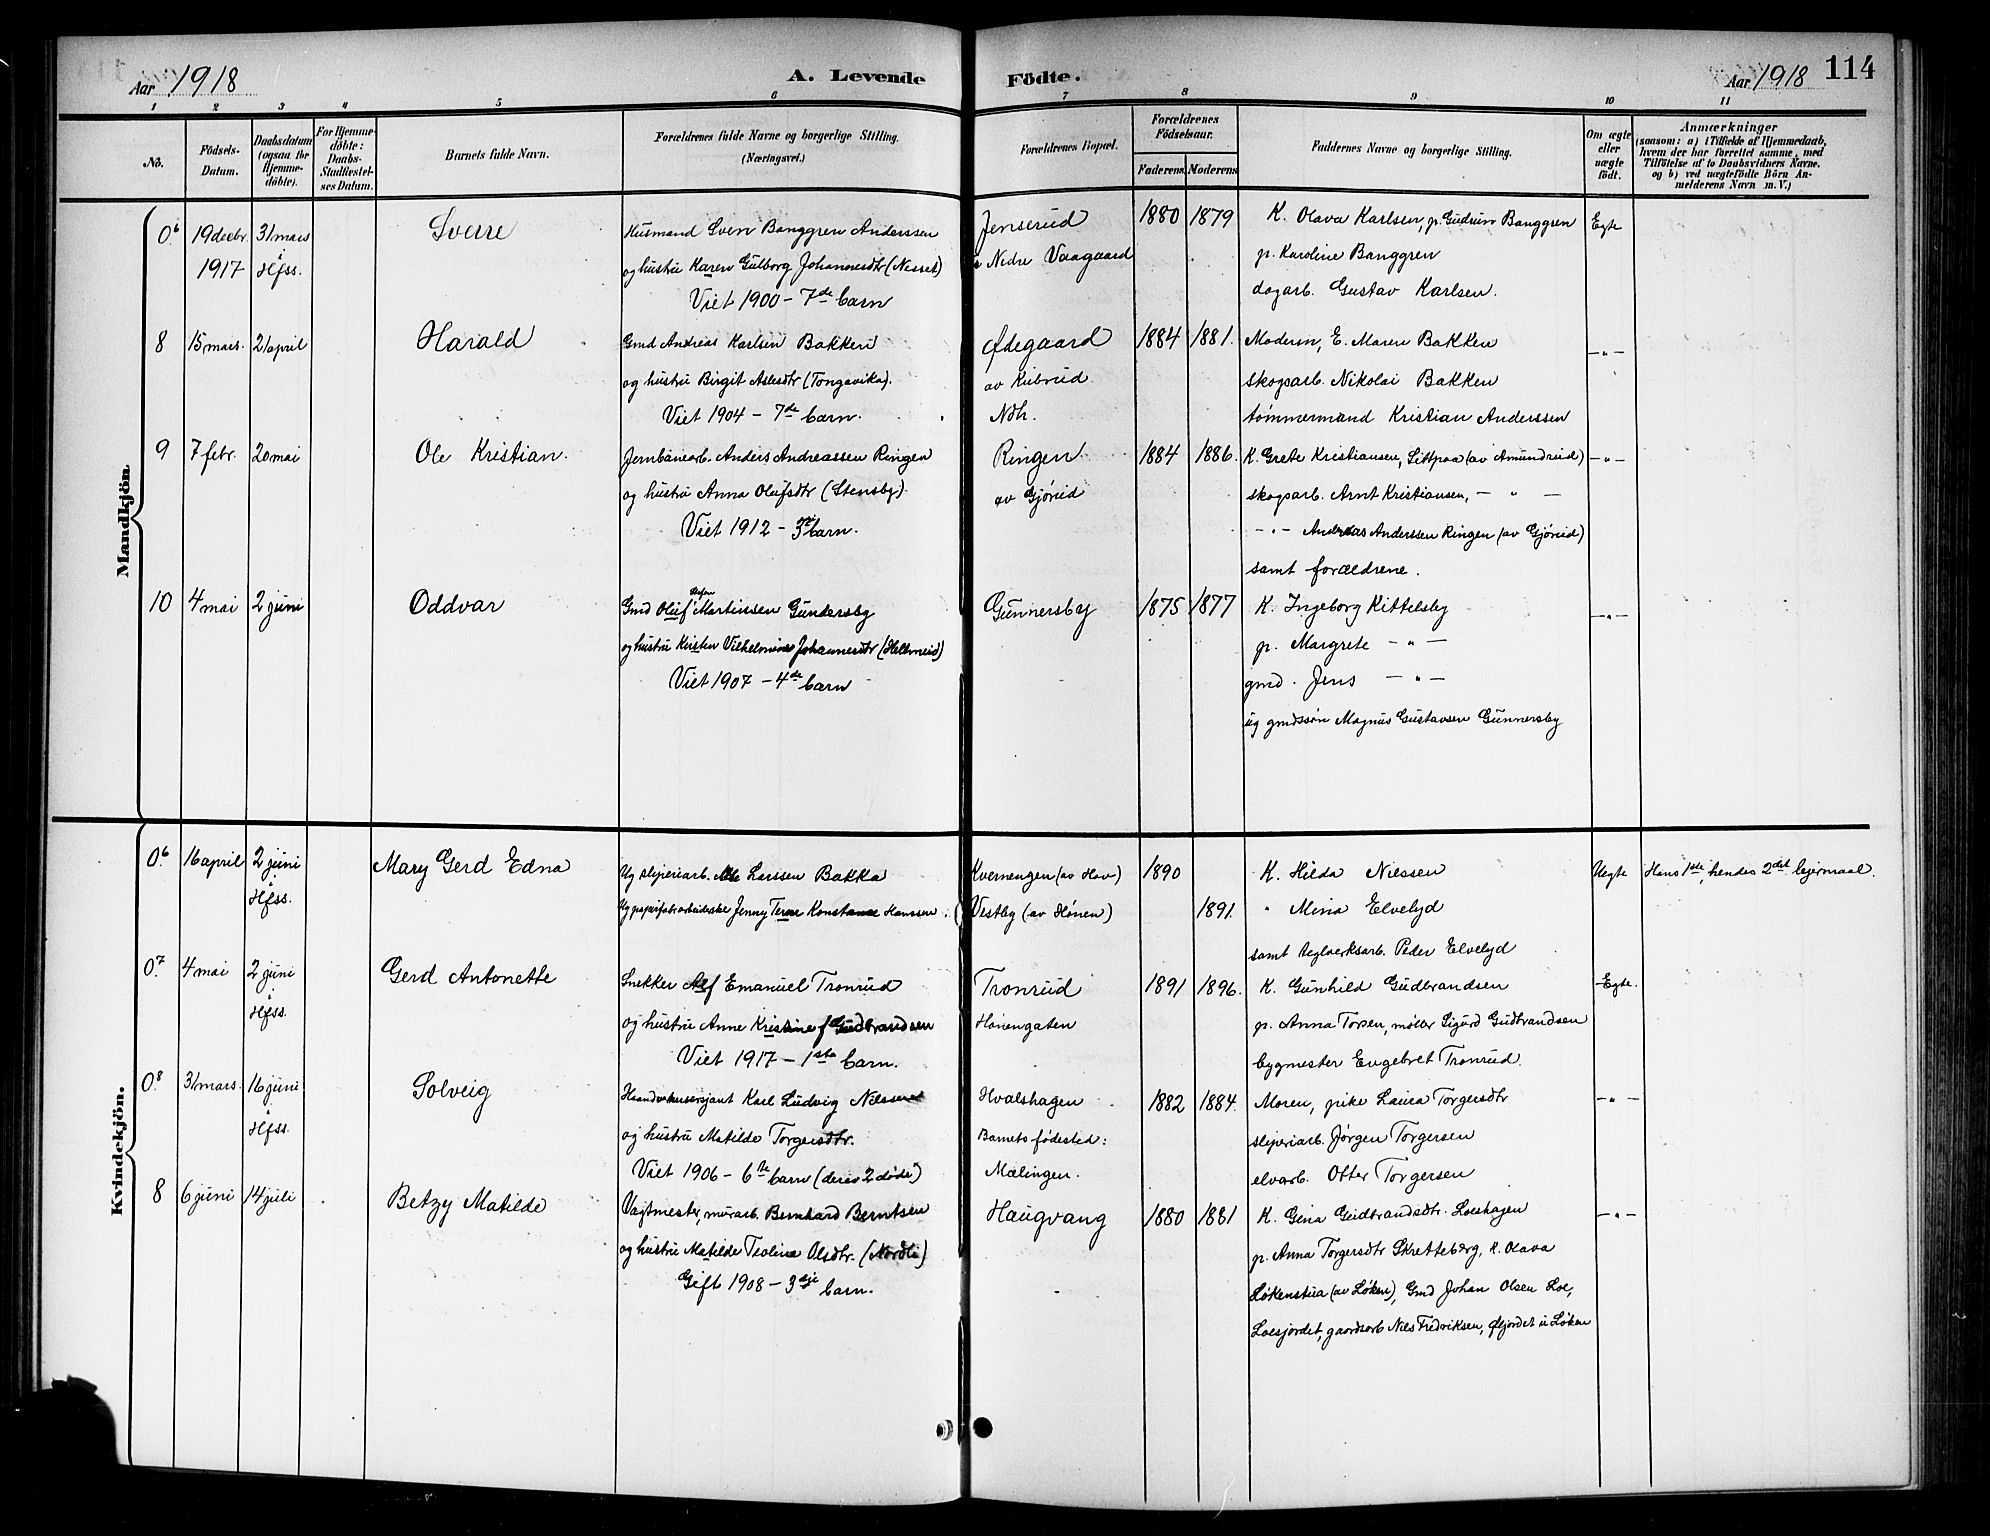 Aar 1918
A. Levende
Födte.
Aar 1918
114
1 2 3 4 5 6 7 8 9 10 11
No.
Födsels-Datum.
Daabsdatum (ogsaa for Hjemme-döbte).
For Hjemme-döbte: Daabs-Stadfæstel-ses Datum.
Barnets fulde Navn.
Forældrenes fulde Navne og borgerlige Stilling. (Næringsvei.)
Forældrenes Bopæl.
Forældrenes Födselsaar.
Faderens. Moderens.
Faddernes Navne og borgerlige Stilling.
Om ægte eller uægte födt.
Anmærkninger
(saasom: a) i Tilfælde af Hjemmedaab,
hvem der har forrettet samme, med
Tilföielse af to Daabsvidners Navne.
og b) ved uægtefödte Börn An-
melderens Navn m. V.)
Mandkjön.
0.6 19 decbr. 31 mars Sverre Husmand Sven Banggren Anderssen Jenserud 1880 1879 K. Olava Karlsen, p. Gudrun Banggren Egte
1917 i Hfss. og hustru Karen Gulborg Johannesdtr (Nesset) u Nedre Vaagaard p. Karoline Banggren
Viet 1900 - 7de barn dagarb. Gustav Karlsen.
8 15 mars. 21 april Harald Gmd Andreas Karlsen Bakken Ødegaard 1884 1881. Moderen, E. Maren Bakken -„-
og hustru Birgit Aslesdtr (Tongavika). av Kubrud skogsarb. Nikolai Bakken
Viet 1904 - 7de barn. Ndh. tømmermand Kristian Anderssen
9 7 febr. 20 mai Ole Kristian. Jernbanearb. Anders Andreassen Ringen Ringen 1884 1886. K. Grete Kristiansen, Sittpaa (av Amundrud) -„-
og hustru Anna Olufsdtr (Stensby). av Gjørud skogsarb. Arnt Kristiansen, - „ -
Viet 1912 - 3die barn. - „ - Andreas Anderssen Ringen (av Gjørud)
samt forældrene.
10 4 mai 2 juni Oddvar Gmd Oluf Martinsen Gundersby Gunnersby 1875 1877 K. Ingeborg Kittelsby -„-
og hustru Kirsten Vilhelmine Johannesdtr p. Margrete - „ -
Viet 1907 - 4de barn gmd. Jens - „ -
ug gmdssøn Magnus Gustavsen Gunnersby
Kvindekjön.
0.6 16 april 2 juni Mary Gerd Edna Ug sliperiarb. Larssen Bakka Kvernengen (av Hov) 1890 K. Hilda Nilssen Uegte Hans 1ste, hendes 2det leiermaal.
i Hfss. Ug papirfabrarbeiderske Jenny Konstance Hanssen. Vestby (av Hønen) 1891. „ Mina Elvelyd
samt teglverksarb. Peder Elvelyd
0.7 4 mai 2 juni Gerd Antonette Snekker Alf Emanuel Tronrud Tronrud 1891 1896. K. Gunhild Gudbrandsen Egte.
i Hfss. og hustru Anne Kristine f Gudbrandsen Hønengaten p. Anna Torsen, møller Sigurd Gudbrandsen
Viet 1917 - 1ste barn. bygmester Engebret Tronrud.
0.8 31 mars. 16 juni Solveig Karl Ludvig Nilssen Hvalshagen 1882 1884. Moren, pike Laura Torgersdtr -„-
i Hfss. og hustru Matilde Torgersdtr. Barnets fødested: sliperiarb. Jørgen Torgersen
Viet 1906 - 6te barn (derav 2 døde) Mælingen. elvarb. Otter Torgersen
8 6 juni 14 juli Betzy Matilde Vagtmester, murarb. Bernhard Berntsen Haugvang 1880 1881 K. Gina Gudbrandsdtr. Loeshagen -„-
og hustru Matilde Teoline Olsdtr. (Nordli) p. Anna Torgersdtr Skretteberg, K. Olava
Gift 1908 - 3dje barn. Løkenstua (av Løken), Gmd Johan Olsen Loe,
Loesjordet, gaardsarb Nils Fredriksen, Øljordet u Løken